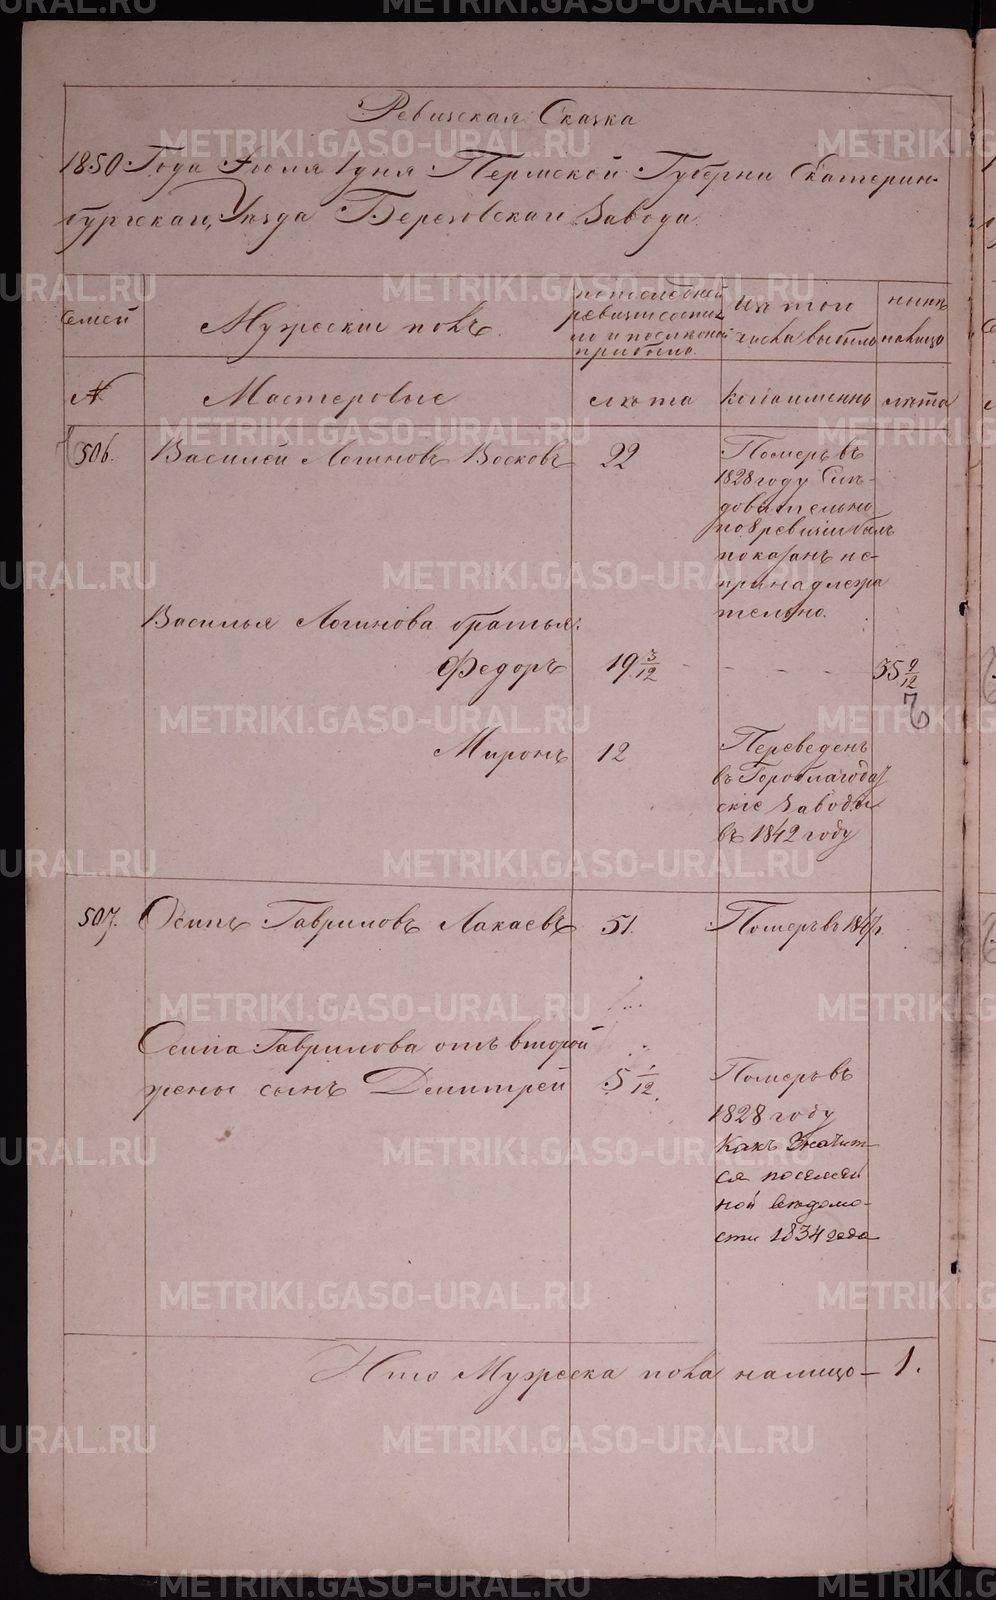 Ревизская Сказка
1850 Года Июля 1 дня Пермской Губернии Екатерин-
бургскаго Уезда Березовскаго Завода
Семей
Мужеский полъ.
по последней
ревизии состоя
ло и после оной
прибыло.
изъ того
числа выбыло
ныне
налицо
№
Мастеровые
лѣта
когда именно
лѣта
506.
Василей Логиновъ Восковъ
22
Померъ въ
1828 году Слѣ-
довательно
по 8 ревизии былъ
показанъ не-
принадлежа
тельно.
Василья Логинова братья:
Федоръ
19 3/12
35 9/12
Миронъ
12
Переведенъ
въ Гороблагодат
скіе Заводы
въ 1842 году
507.
Осипъ Гавриловъ Лакаевъ
51.
Померъ въ 1847.
Осипа Гаврилова отъ второй
жены сынъ Демитрей
5 1/12.
Померъ въ
1828 году
Какъ Значит-
ся посемей
ной ведомо-
сти 1834 года
Итого Мужеска пола налицо — 1.
METRIKI.GASO-URAL.RU